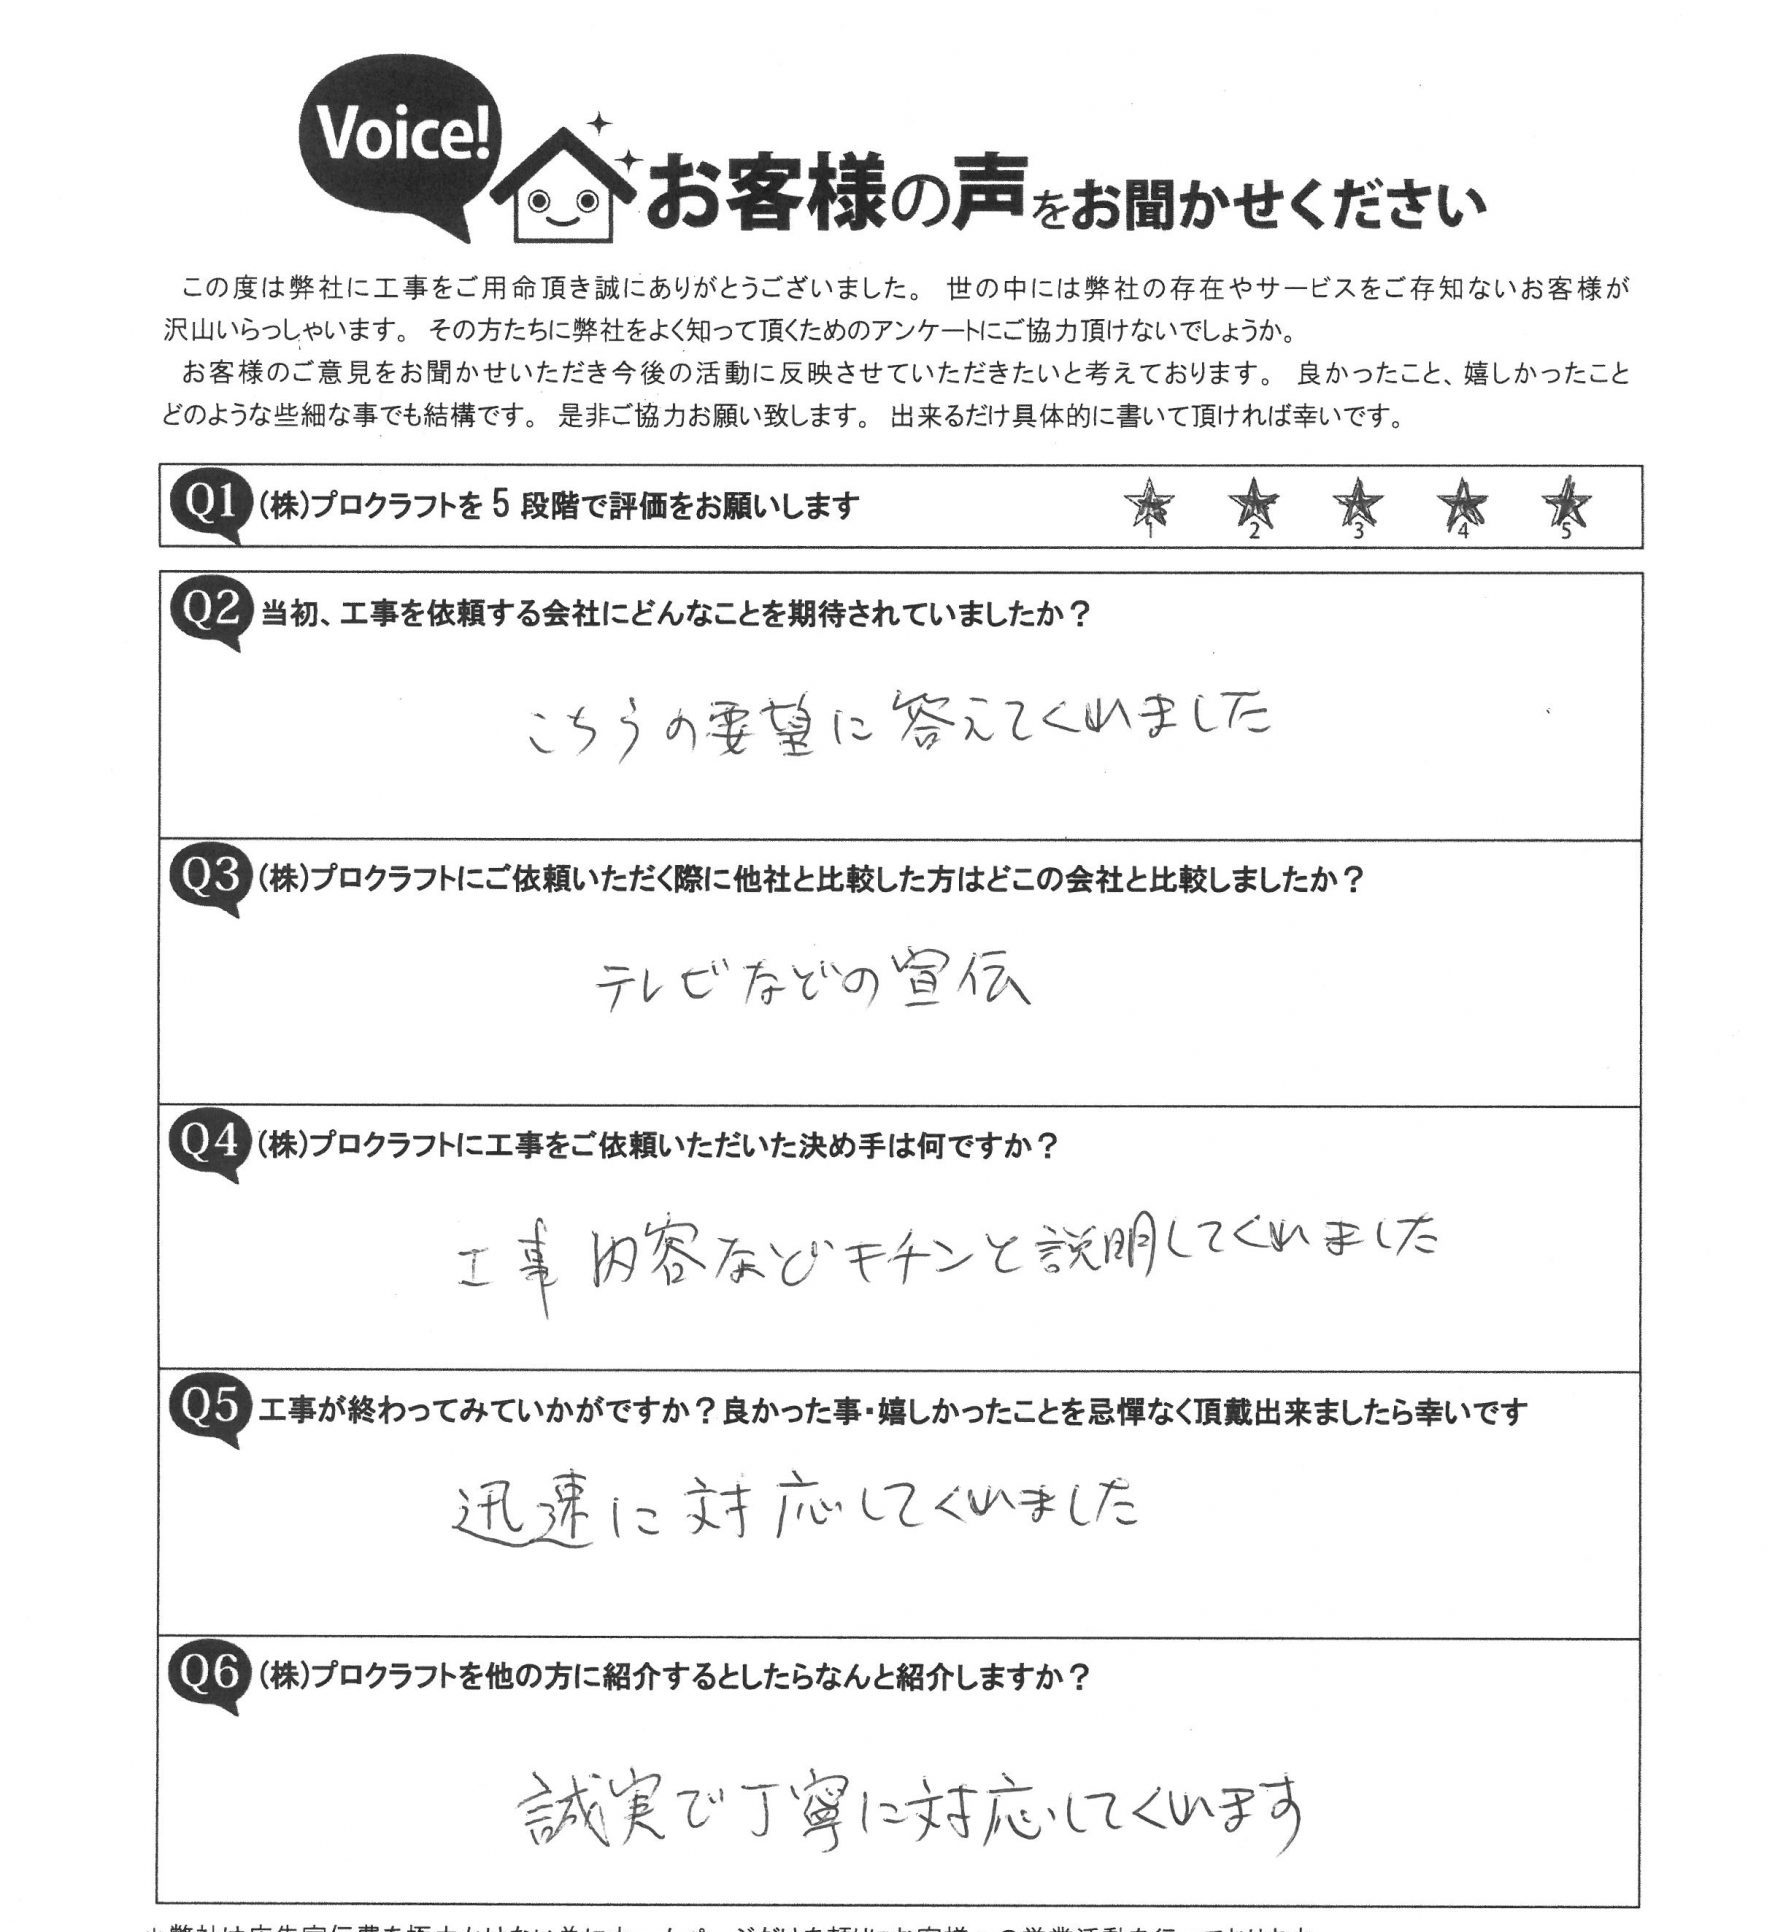 Voice!
お客様の声をお聞かせください
この度は弊社に工事をご用命頂き誠にありがとうございました。 世の中には弊社の存在やサービスをご存知ないお客様が
沢山いらっしゃいます。 その方たちに弊社をよく知って頂くためのアンケートにご協力頂けないでしょうか。
お客様のご意見をお聞かせいただき今後の活動に反映させていただきたいと考えております。 良かったこと、嬉しかったこと
どのような些細な事でも結構です。 是非ご協力お願い致します。 出来るだけ具体的に書いて頂ければ幸いです。
Q1 (株)プロクラフトを5段階で評価をお願いします
1 2 3 4 5
Q2 当初、工事を依頼する会社にどんなことを期待されていましたか？
こちらの要望に答えてくれました
Q3 (株)プロクラフトにご依頼いただく際に他社と比較した方はどこの会社と比較しましたか？
テレビなどの宣伝
Q4 (株)プロクラフトに工事をご依頼いただいた決め手は何ですか？
工事内容などキチンと説明してくれました
Q5 工事が終わってみていかがですか？良かった事・嬉しかったことを忌憚なく頂戴出来ましたら幸いです
迅速に対応してくれました
Q6 (株)プロクラフトを他の方に紹介するとしたらなんと紹介しますか？
誠実で丁寧に対応してくれます